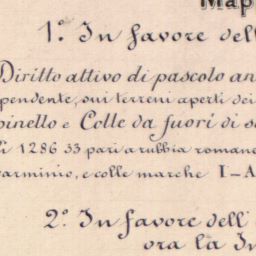 Map
1.° In favore dell
Diritto attivo di pascolo an
pendente, sui terreni aperti dei
pinello e Colle da fuori di s
di 1286 33 pari a rubbia romane
arminio, e colle marche I-A
2.° In favore dell'
ora la In